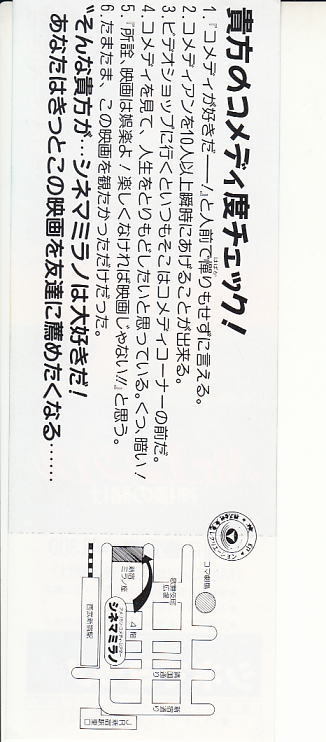 貴方のコメディ度チェック!
1.『コメディが好きだ——!』と人前で憚りもせずに言える。
はばか
2.コメディアンを10人以上瞬時にあげることが出来る。
3.ビデオショップに行くといつもそこはコメディコーナーの前だ。
4.コメディを見て、人生をとりもどしたいと思っている。くっ、暗い!
5.『所詮、映画は娯楽よ!楽しくなければ映画じゃない!!』と思う。
6.たまたま、この映画を観たかっただけだった。
“そんな貴方が…シネマミラノは大好きだ!
あなたはきっとこの映画を友達に薦めたくなる……
コマ劇場
歌舞伎町
広場
新宿
ミラノ座
4階
シネマミラノ
西武新宿駅
靖国通り
新宿通り
JR新宿駅東口